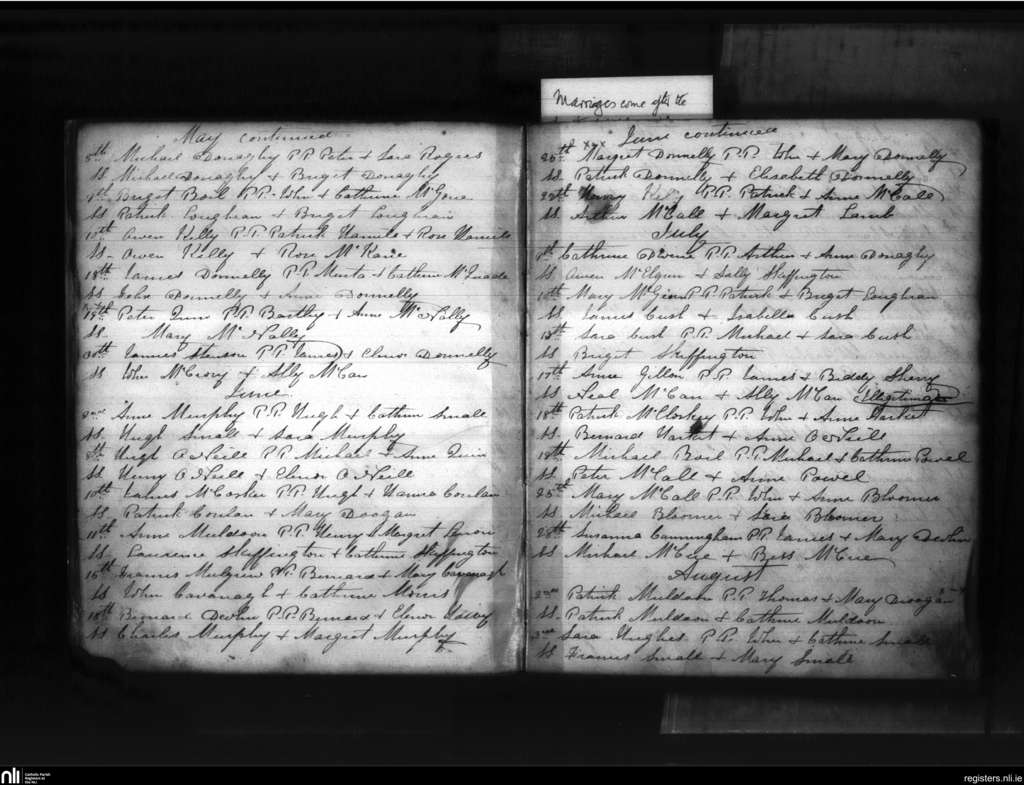 Marriages come after the
May continued
8th Michael Donaghy P.P. Peter & Sara Rogers
SS Michael Donaghy & Briget Donaghy
Briget Boil P.P. John & Catherine McGone
SS Patrick Loughran & Briget Loughran
10th Owen Kelly P.P. Patrick Hamile & Rose Hamile
SS Owen Kelly & Rose McKane
18th James Donnelly P.P. & Catherine
SS Felix Donnelly & Donnelly
Peter Quin P.P. Bartley & Anne McNally
SS. Mary McNally
30th James P.P. James & Elenor Donnelly
SS John McCrory & Ally McCan
June
2nd Anne Murphy P.P. Hugh & Cathrine Small
SS Hugh Small & Sara Murphy
Hugh O Neill P.P. Michael & Anne Quin
SS Henry O Neill & Elenor O Neill
10th James McCosker P.P. Hugh & Hanna Conlan
SS Patrick Conlan & Mary Doogan
11th Anne Muldoon P.P. Henry & Margret
SS. Laurence Skeffington & Cathrine Skeffington
15th Francis Mulgrew P.P. Bernard & Mary Cavanagh
SS John Cavanagh & Cathrine Morris
18th Bernard Devlin P.P. Bernard & Elenor
SS Charles Murphy & Margret Murphy
June continued
20th Margret Donnelly P.P. John & Mary Donnelly
SS. Patrick Donnelly & Elisabeth Donnelly
22th P.P. Patrick & Anne McCall
SS Arthur McCall & Margret Lamb
July
8th Cathrine Devlin P.P. Arthur & Anne Donaghy
SS Owen McElgun & Sally Skeffington
10th Mary McGinn P.P. Patrick & Briget Loughran
SS James Cush & Isabella Cush
13th Sara Cush P.P. Michael & Sara Cush
SS Briget Skeffington
17th Anne Gillon P.P. James & Biddy Sherry
SS Neal McCan & Ally McCan Illegitimate
18th Patrick McCloskey P.P. John & Anne Harket
SS. Bernard Harket & Anne O Neill
19th Michael Boil P.P. Michael & Cathrine Powel
SS Peter McCall & Anne Powel
25th Mary McCall P.P. John & Anne Bloomer
SS Michael Bloomer & Sara Bloomer
28th Susanna Cunningham P.P. James & Mary Devlin
SS Michael McCrue & Bess McCrue
August
2nd Patrick Muldoon P.P. Thomas & Mary Doogan
SS. Patrick Muldoon & Cathrine Muldoon
3rd Sara Hughes P.P. John & Cathrine Small
SS Francis Small & Mary Small
nli Catholic Parish Registers at the NLI
registers.nli.ie